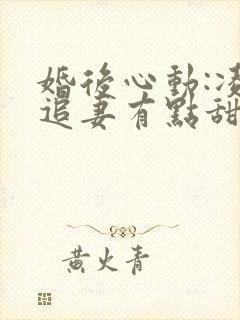 婚後心動:凌
追妻有點甜
黃火青